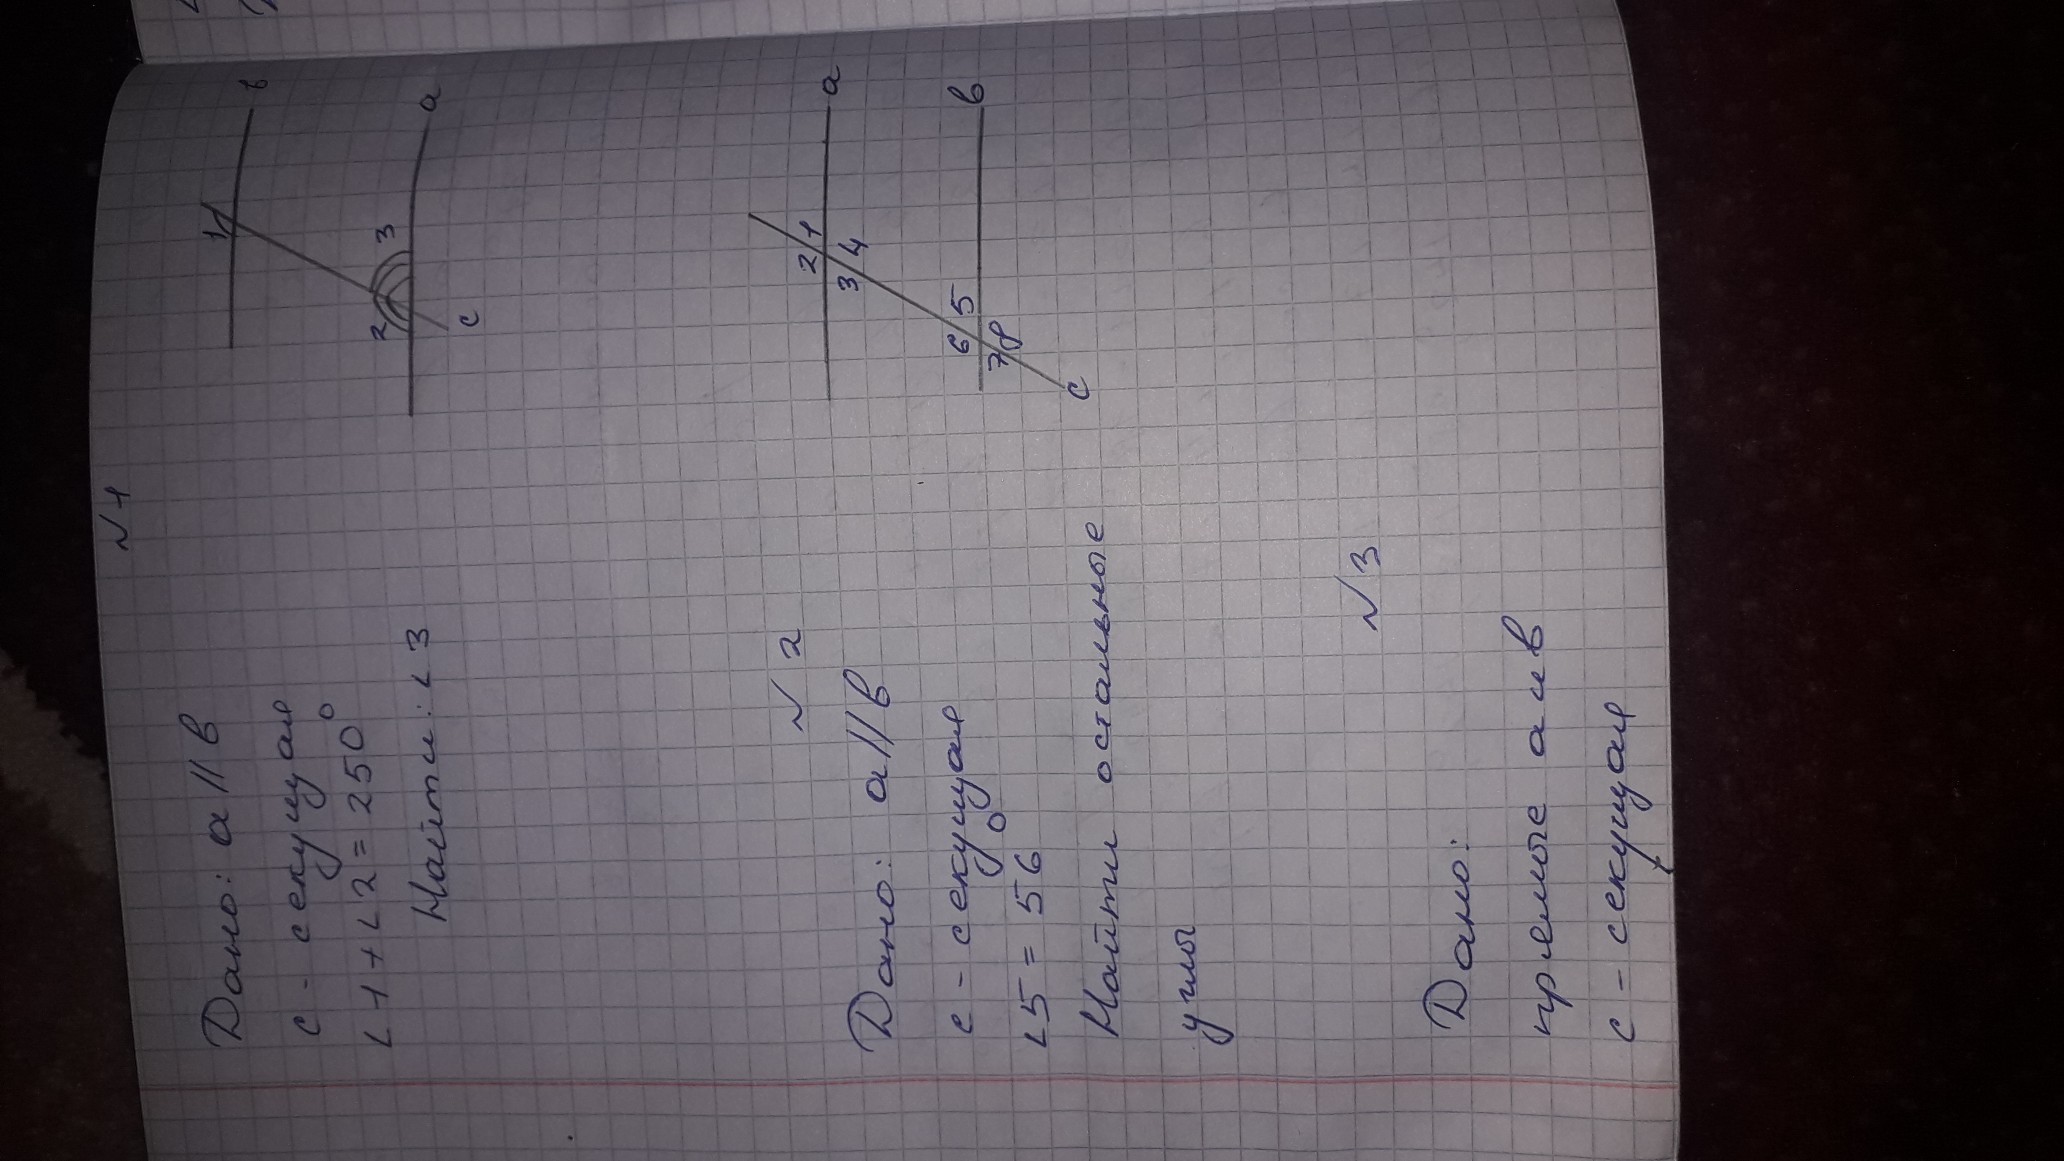 №1
Дано: a || в
с - секущая
∠1 + ∠2 = 250°
Найти: ∠3
в
1
2
3
а
с
№2
Дано: a || в
с - секущая
∠5 = 56°
Найти остальные
углы
а
2 1
3 4
в
6 5
7 8
с
№3
Дано:
прямые а и в
с - секущая